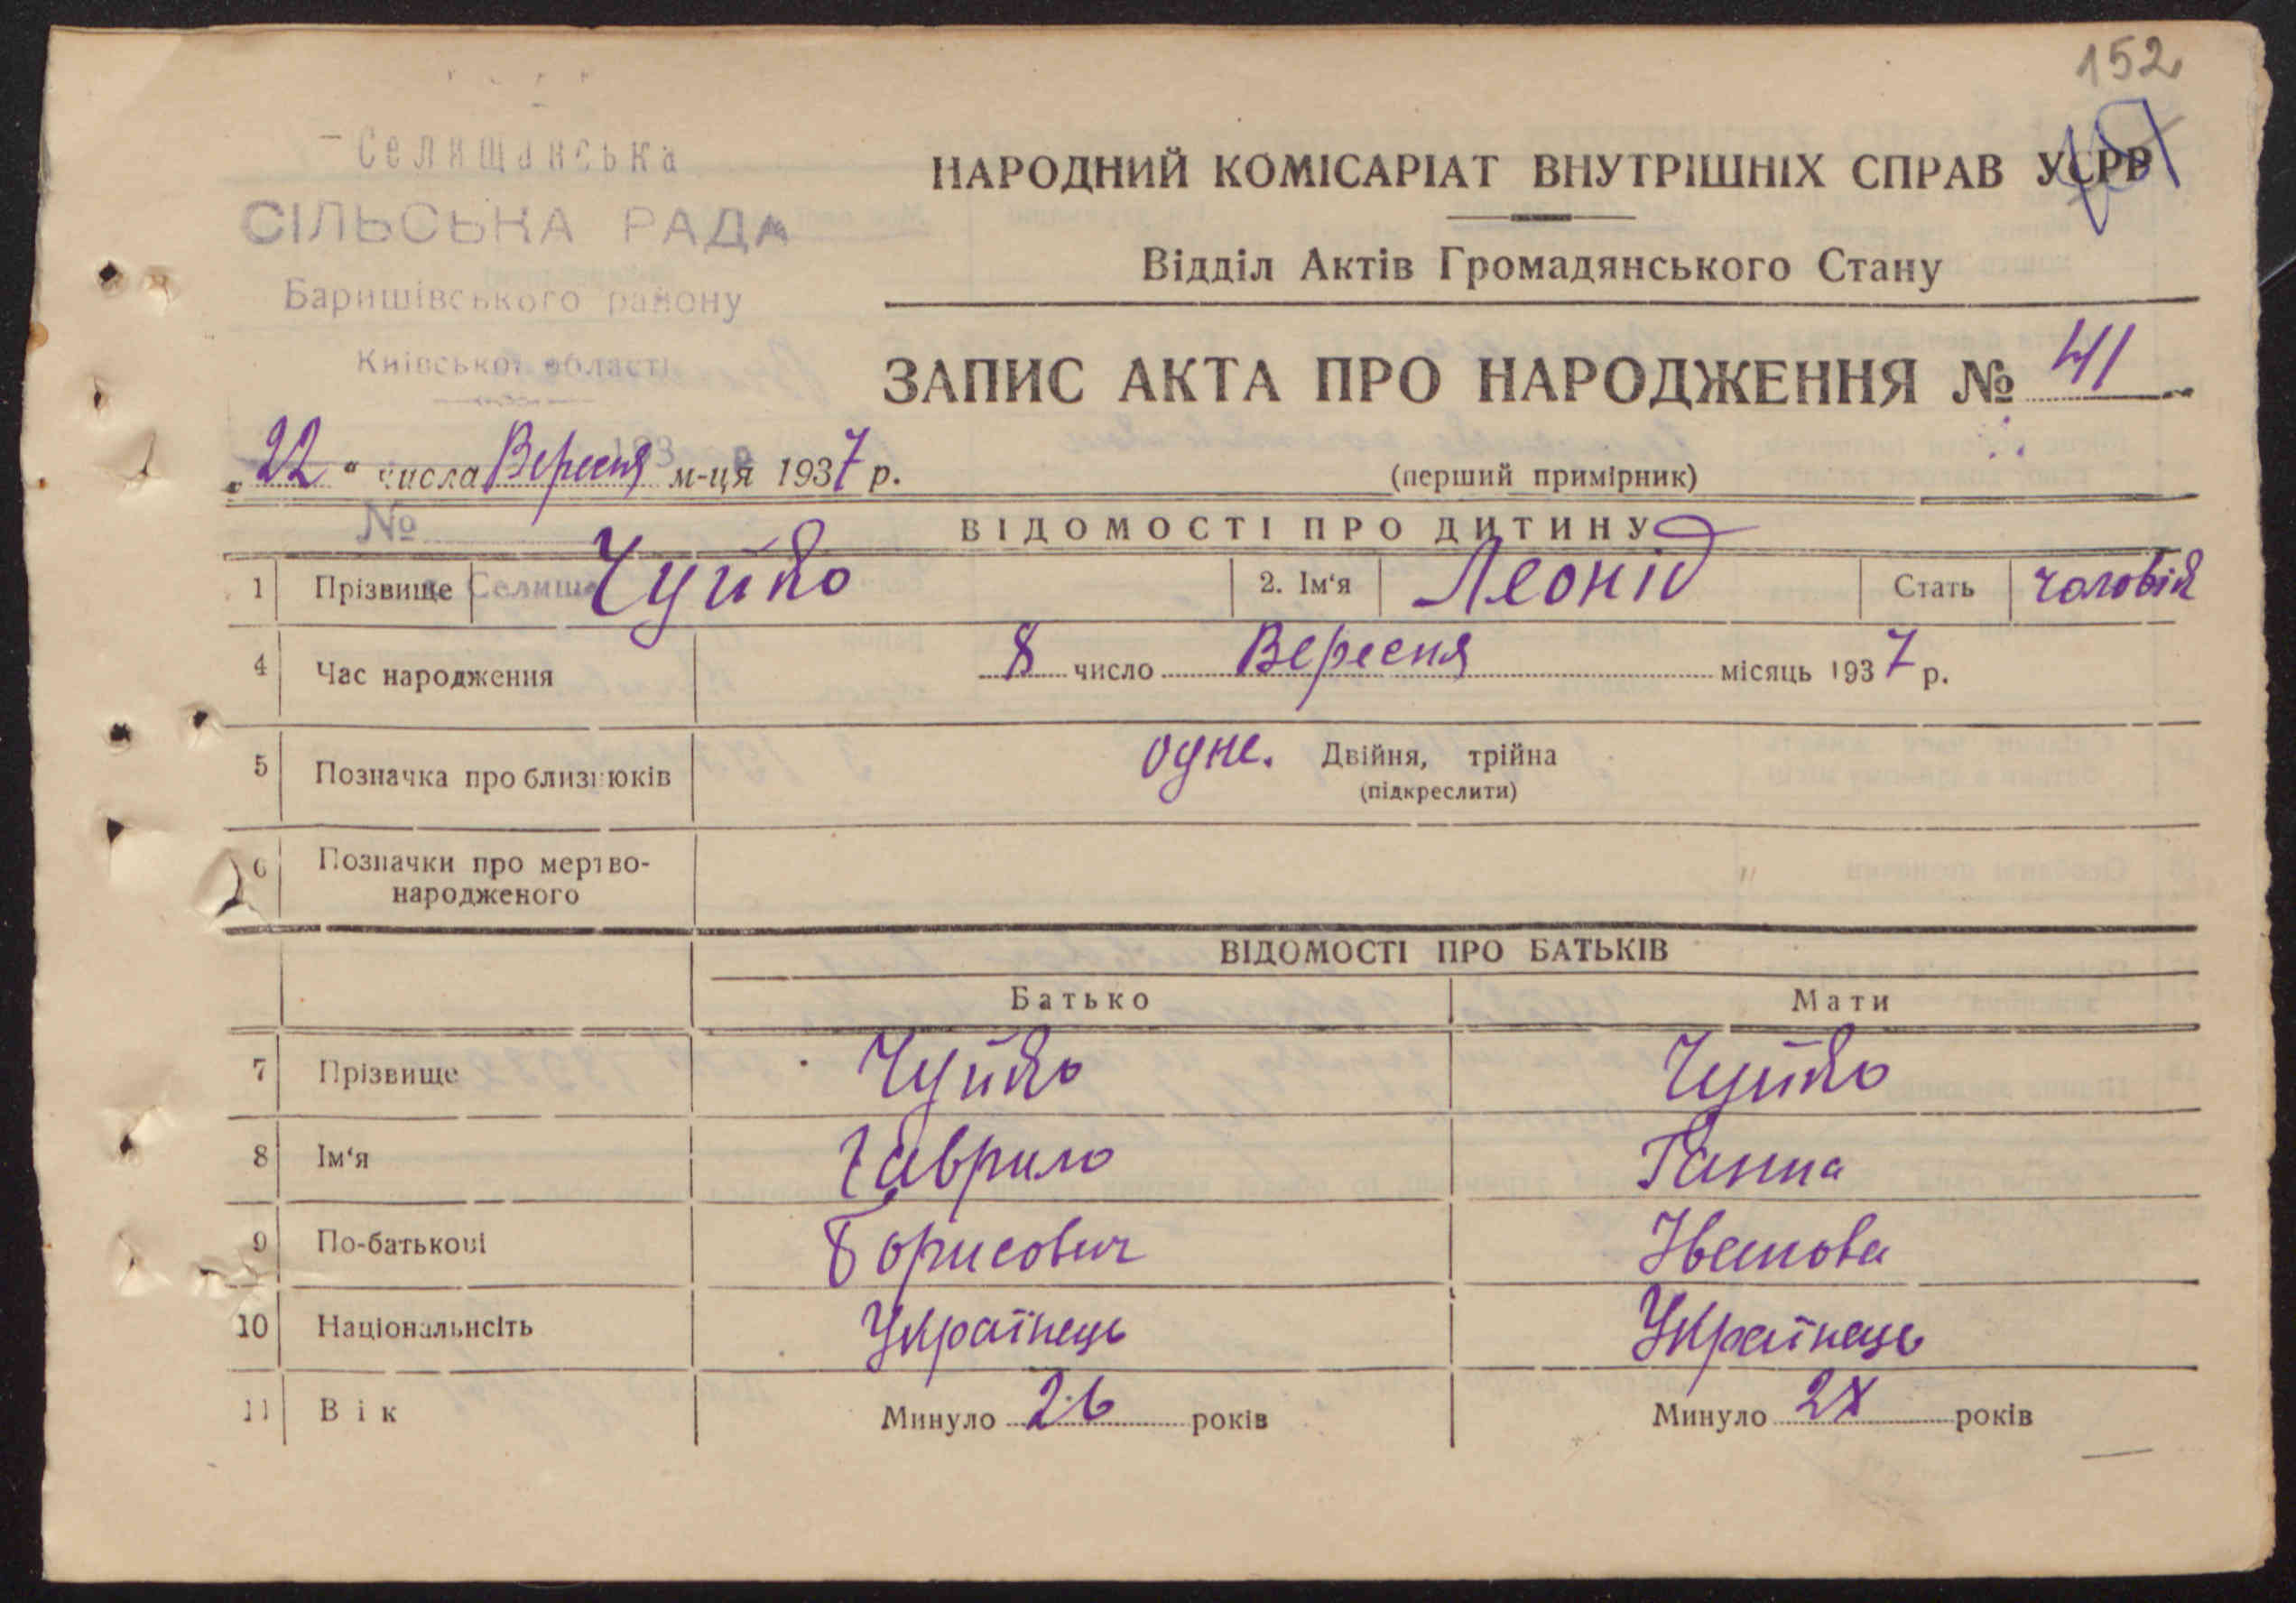 152
Селищанська
СІЛЬСЬКА РАДА
Баришівського району
Київської області
НАРОДНИЙ КОМІСАРІАТ ВНУТРІШНІХ СПРАВ УСРР
Відділ Актів Громадянського Стану
ЗАПИС АКТА ПРО НАРОДЖЕННЯ № 41
„22“ числа Вересня м-ця 1937 р.
(перший примірник)
№
ВІДОМОСТІ ПРО ДИТИНУ
1 Прізвище Чуйко 2. Ім'я Леонід Стать чоловік
4 Час народження 8 число Вересня місяць 1937 р.
5 Позначка про близнюків одне. Двійня, трійна
(підкреслити)
6 Позначки про мертво-
народженого
ВІДОМОСТІ ПРО БАТЬКІВ
Батько Мати
7 Прізвище Чуйко Чуйко
8 Ім'я Гаврило Ганна
9 По-батькові Борисович Іванова
10 Національнсіть Українець Українець
11 Вік Минуло 26 років Минуло років